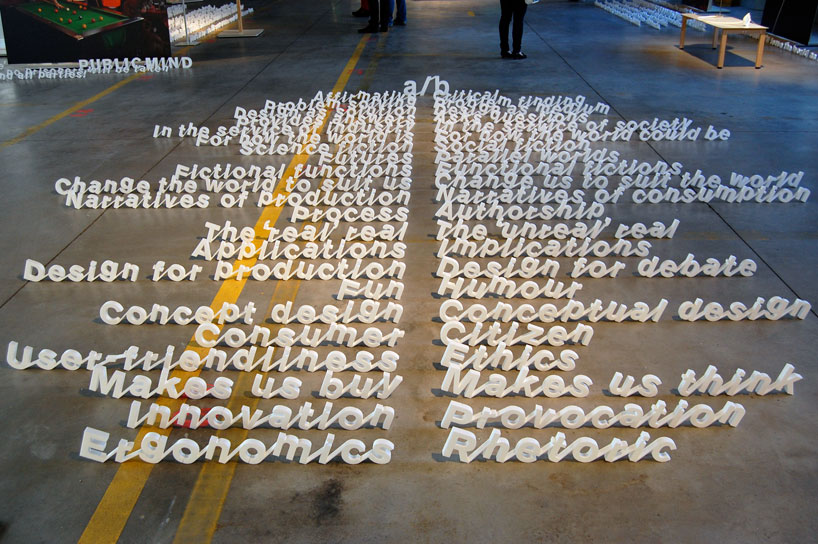 PUBLIC MIND
a/b
Affirmative Critical
Problem finding
Asks questions
In the service of industry society
For how the world could be
Science fiction Social fiction
Futures Parallel worlds
Fictional functions Functional fictions
Change the world to suit us Change us to suit the world
Narratives of production Narratives of consumption
Process Authorship
The 'real' real The 'unreal' real
Applications Implications
Design for production Design for debate
Fun Humour
Concept design Conceptual design
Consumer Citizen
User-friendliness Ethics
Makes us buy Makes us think
Innovation Provocation
Ergonomics Rhetoric